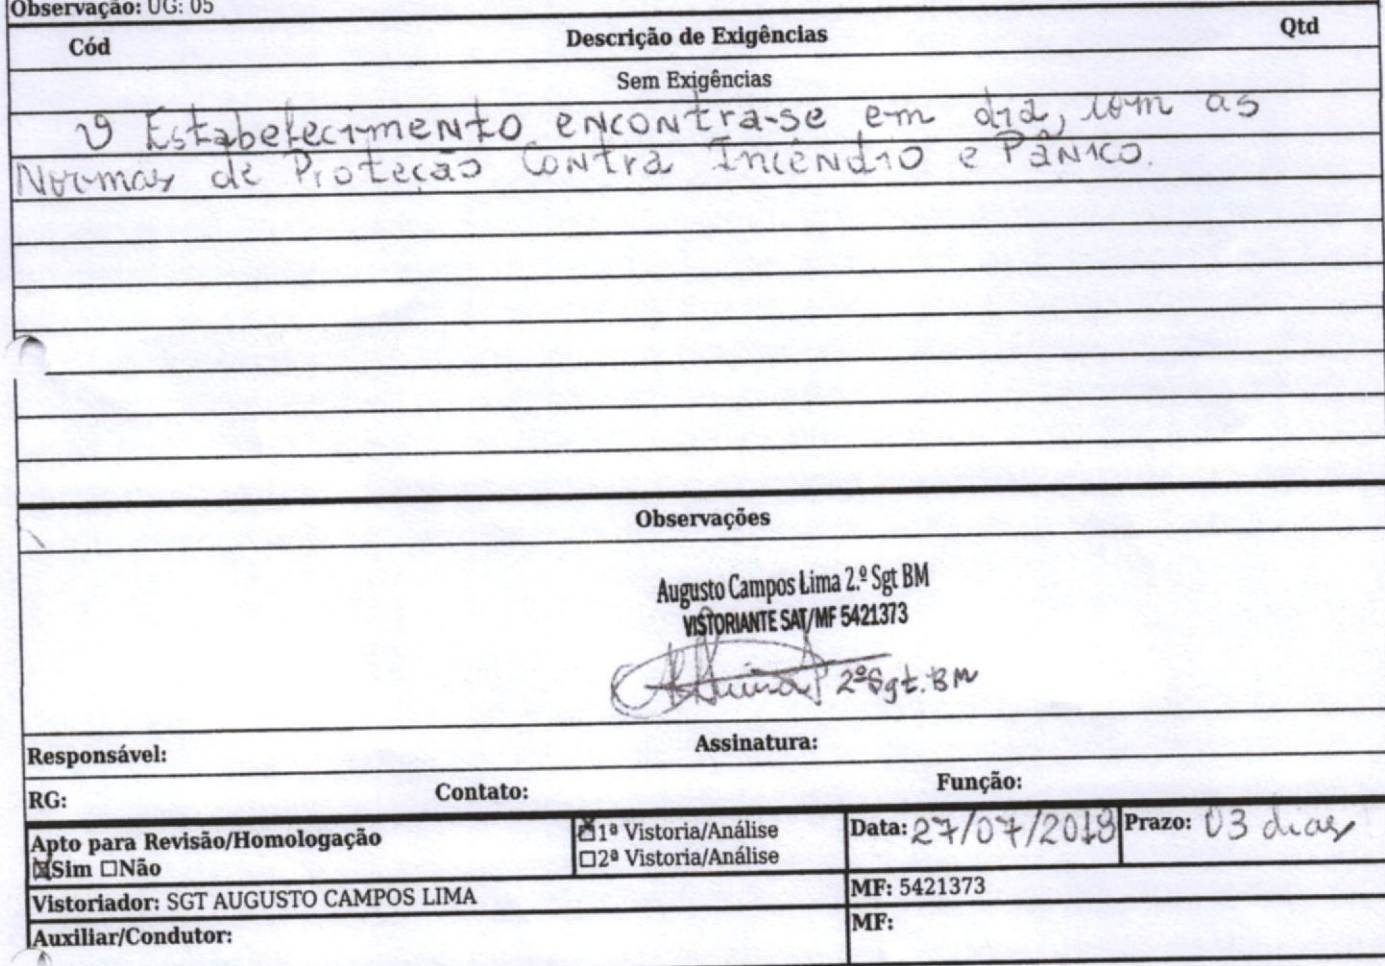 Observação: UG: 05
Cód Descrição de Exigências Qtd
Sem Exigências
O Estabelecimento encontra-se em dia, com as
Normas de Proteção Contra Incêndio e Pânico.
Observações
Augusto Campos Lima 2.º Sgt BM
VISTORIANTE SAT/MF 5421373
2º Sgt. BM
Responsável: Assinatura:
RG: Contato: Função:
Apto para Revisão/Homologação
☒Sim ☐Não
☒1ª Vistoria/Análise
☐2ª Vistoria/Análise
Data: 27/07/2018 Prazo: 03 dias
Vistoriador: SGT AUGUSTO CAMPOS LIMA MF: 5421373
Auxiliar/Condutor: MF: